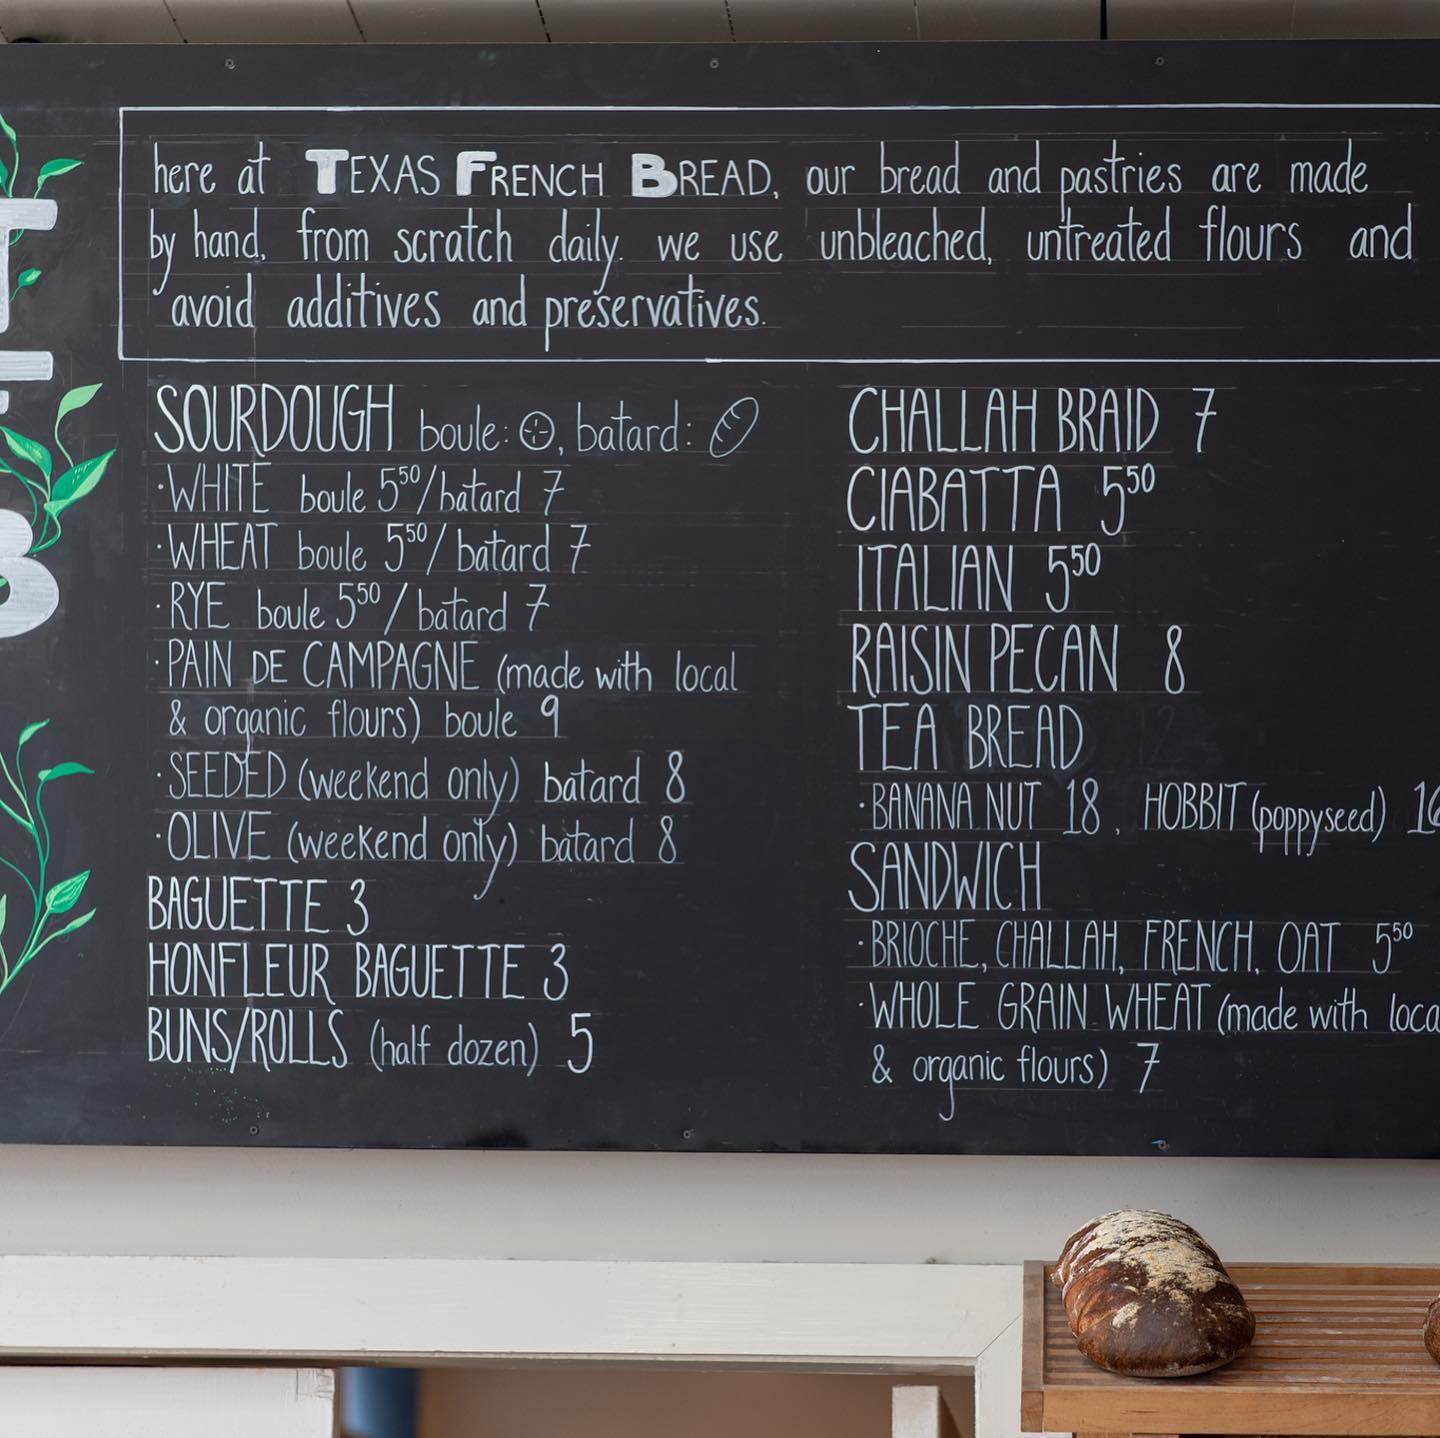 here at TEXAS FRENCH BREAD, our bread and pastries are made
by hand, from scratch daily. we use unbleached, untreated flours and
avoid additives and preservatives.
SOURDOUGH boule: , batard:
·WHITE boule 5⁵⁰/batard 7
·WHEAT boule 5⁵⁰/batard 7
·RYE boule 5⁵⁰/batard 7
·PAIN DE CAMPAGNE (made with local
& organic flours) boule 9
·SEEDED (weekend only) batard 8
·OLIVE (weekend only) batard 8
BAGUETTE 3
HONFLEUR BAGUETTE 3
BUNS/ROLLS (half dozen) 5
CHALLAH BRAID 7
CIABATTA 5⁵⁰
ITALIAN 5⁵⁰
RAISIN PECAN 8
TEA BREAD
·BANANA NUT 18, HOBBIT (poppyseed) 16
SANDWICH
·BRIOCHE, CHALLAH, FRENCH, OAT 5⁵⁰
·WHOLE GRAIN WHEAT (made with loca
& organic flours) 7